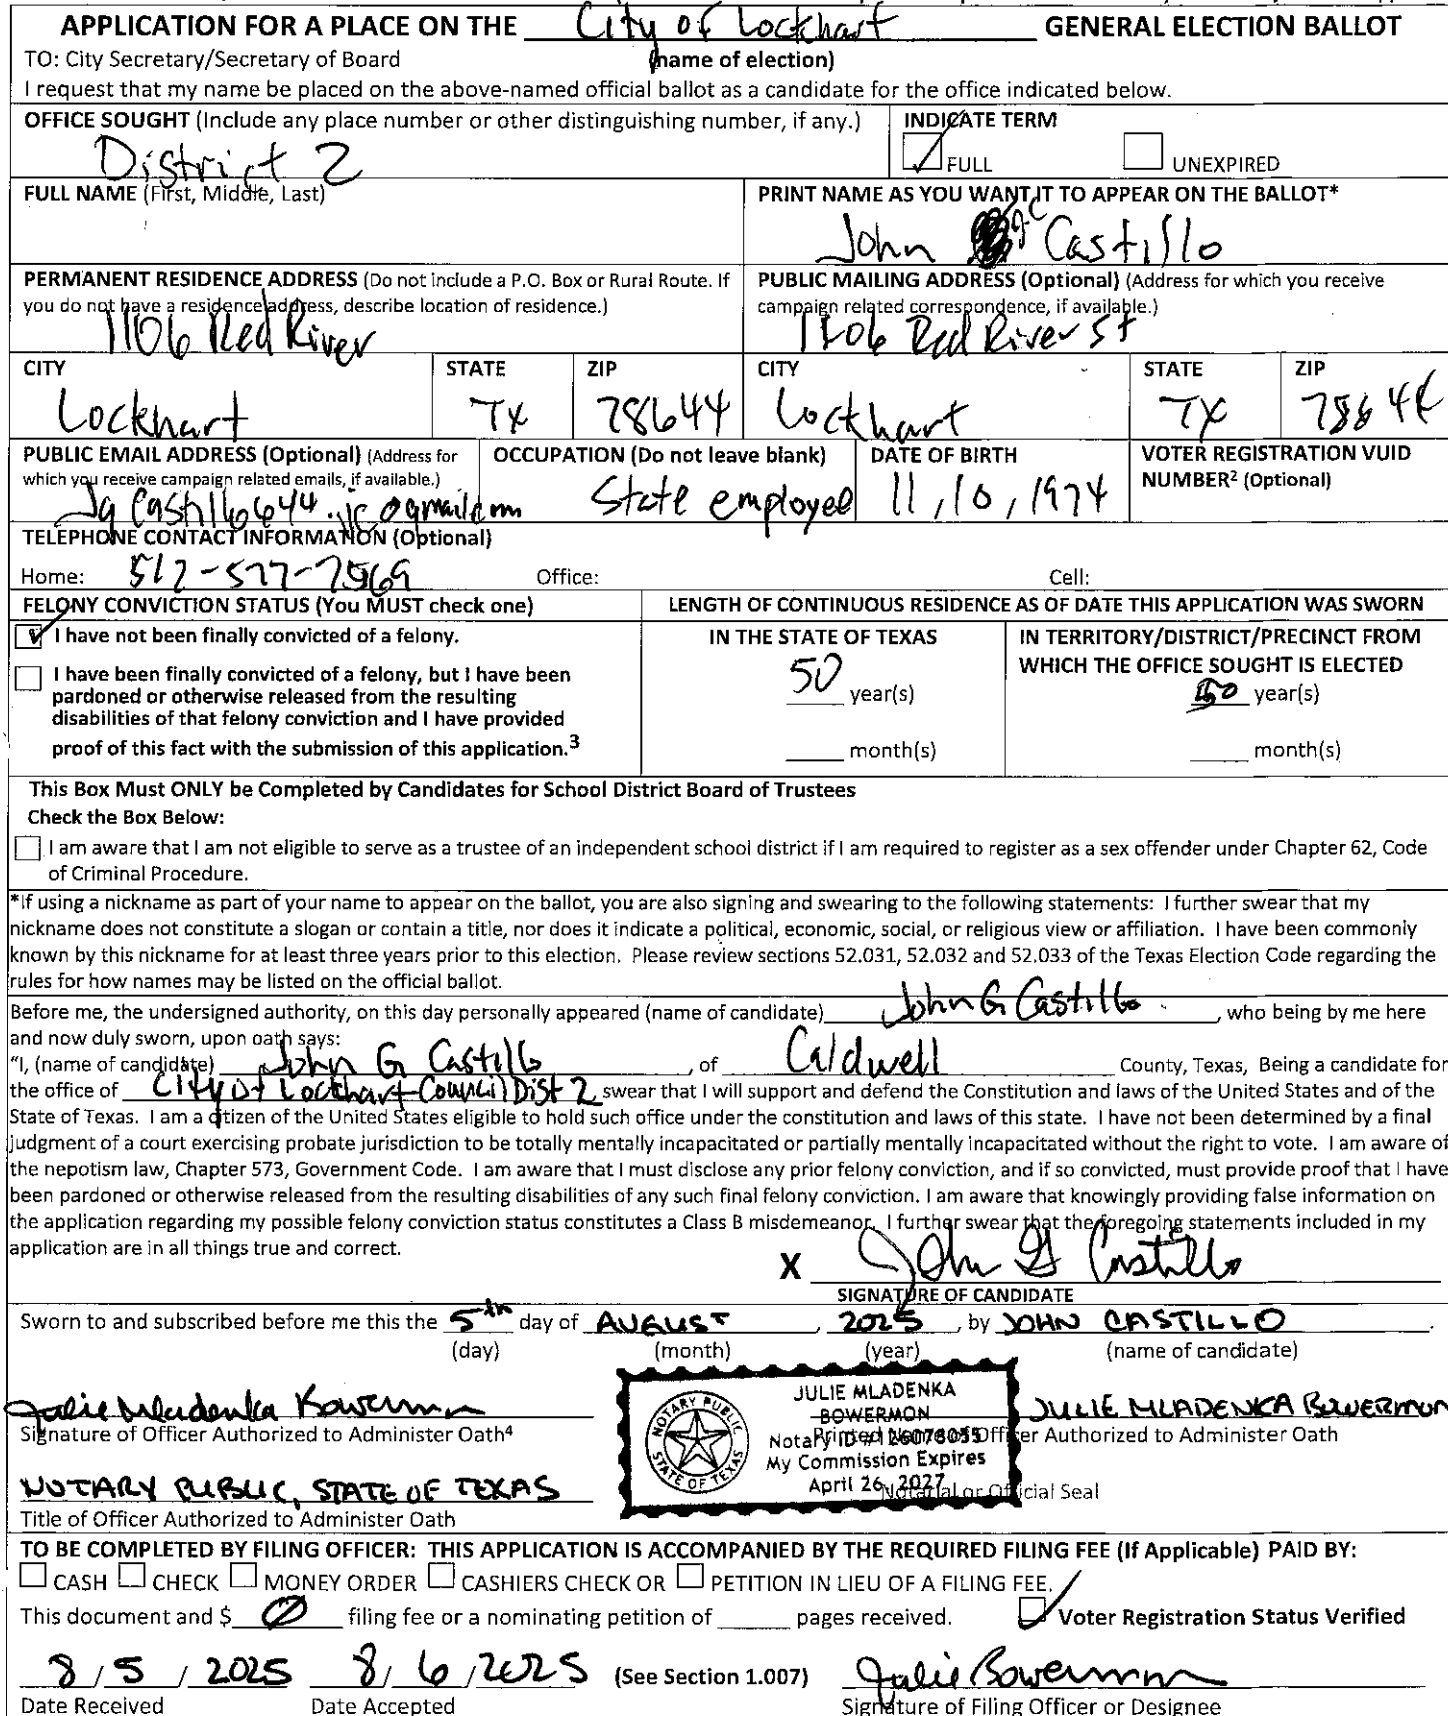 APPLICATION FOR A PLACE ON THE City of Lockhart GENERAL ELECTION BALLOT
TO: City Secretary/Secretary of Board (name of election)
I request that my name be placed on the above-named official ballot as a candidate for the office indicated below.
OFFICE SOUGHT (Include any place number or other distinguishing number, if any.) INDICATE TERM
District 2 FULL UNEXPIRED
FULL NAME (First, Middle, Last) PRINT NAME AS YOU WANT IT TO APPEAR ON THE BALLOT*
John Castillo
PERMANENT RESIDENCE ADDRESS (Do not include a P.O. Box or Rural Route. If PUBLIC MAILING ADDRESS (Optional) (Address for which you receive
you do not have a residence address, describe location of residence.) campaign related correspondence, if available.)
1106 Red River 1106 Red River St
CITY STATE ZIP CITY STATE ZIP
Lockhart Tx 78644 Lockhart TX 78644
PUBLIC EMAIL ADDRESS (Optional) (Address for OCCUPATION (Do not leave blank) DATE OF BIRTH VOTER REGISTRATION VUID
which you receive campaign related emails, if available.) NUMBER² (Optional)
State employee 11, 10, 1974
TELEPHONE CONTACT INFORMATION (Optional)
Home: 512-577-7569 Office: Cell:
FELONY CONVICTION STATUS (You MUST check one) LENGTH OF CONTINUOUS RESIDENCE AS OF DATE THIS APPLICATION WAS SWORN
I have not been finally convicted of a felony. IN THE STATE OF TEXAS IN TERRITORY/DISTRICT/PRECINCT FROM
WHICH THE OFFICE SOUGHT IS ELECTED
I have been finally convicted of a felony, but I have been 50 year(s) 50 year(s)
pardoned or otherwise released from the resulting
disabilities of that felony conviction and I have provided
proof of this fact with the submission of this application.³ month(s) month(s)
This Box Must ONLY be Completed by Candidates for School District Board of Trustees
Check the Box Below:
I am aware that I am not eligible to serve as a trustee of an independent school district if I am required to register as a sex offender under Chapter 62, Code
of Criminal Procedure.
*If using a nickname as part of your name to appear on the ballot, you are also signing and swearing to the following statements: I further swear that my
nickname does not constitute a slogan or contain a title, nor does it indicate a political, economic, social, or religious view or affiliation. I have been commonly
known by this nickname for at least three years prior to this election. Please review sections 52.031, 52.032 and 52.033 of the Texas Election Code regarding the
rules for how names may be listed on the official ballot.
Before me, the undersigned authority, on this day personally appeared (name of candidate) John G Castillo, who being by me here
and now duly sworn, upon oath says:
"I, (name of candidate) John G Castillo, of Caldwell County, Texas, Being a candidate for
the office of City of Lockhart Council Dist 2 swear that I will support and defend the Constitution and laws of the United States and of the
State of Texas. I am a citizen of the United States eligible to hold such office under the constitution and laws of this state. I have not been determined by a final
judgment of a court exercising probate jurisdiction to be totally mentally incapacitated or partially mentally incapacitated without the right to vote. I am aware of
the nepotism law, Chapter 573, Government Code. I am aware that I must disclose any prior felony conviction, and if so convicted, must provide proof that I have
been pardoned or otherwise released from the resulting disabilities of any such final felony conviction. I am aware that knowingly providing false information on
the application regarding my possible felony conviction status constitutes a Class B misdemeanor. I further swear that the foregoing statements included in my
application are in all things true and correct.
X John G Castillo
SIGNATURE OF CANDIDATE
Sworn to and subscribed before me this the 5th day of AUGUST, 2025, by JOHN CASTILLO.
(day) (month) (year) (name of candidate)
Julie Mladenka Bowermon JULIE MLADENKA BOWERMON
Signature of Officer Authorized to Administer Oath⁴ Printed Name of Officer Authorized to Administer Oath
NOTARY PUBLIC STATE OF TEXAS
JULIE MLADENKA
BOWERMON
Notary ID #126078055
My Commission Expires
April 26, 2027
NOTARY PUBLIC, STATE OF TEXAS Notarial or Official Seal
Title of Officer Authorized to Administer Oath
TO BE COMPLETED BY FILING OFFICER: THIS APPLICATION IS ACCOMPANIED BY THE REQUIRED FILING FEE (If Applicable) PAID BY:
CASH CHECK MONEY ORDER CASHIERS CHECK OR PETITION IN LIEU OF A FILING FEE.
This document and $ 0 filing fee or a nominating petition of pages received. Voter Registration Status Verified
8/5/2025 8/6/2025 (See Section 1.007) Julie Bowermon
Date Received Date Accepted Signature of Filing Officer or Designee